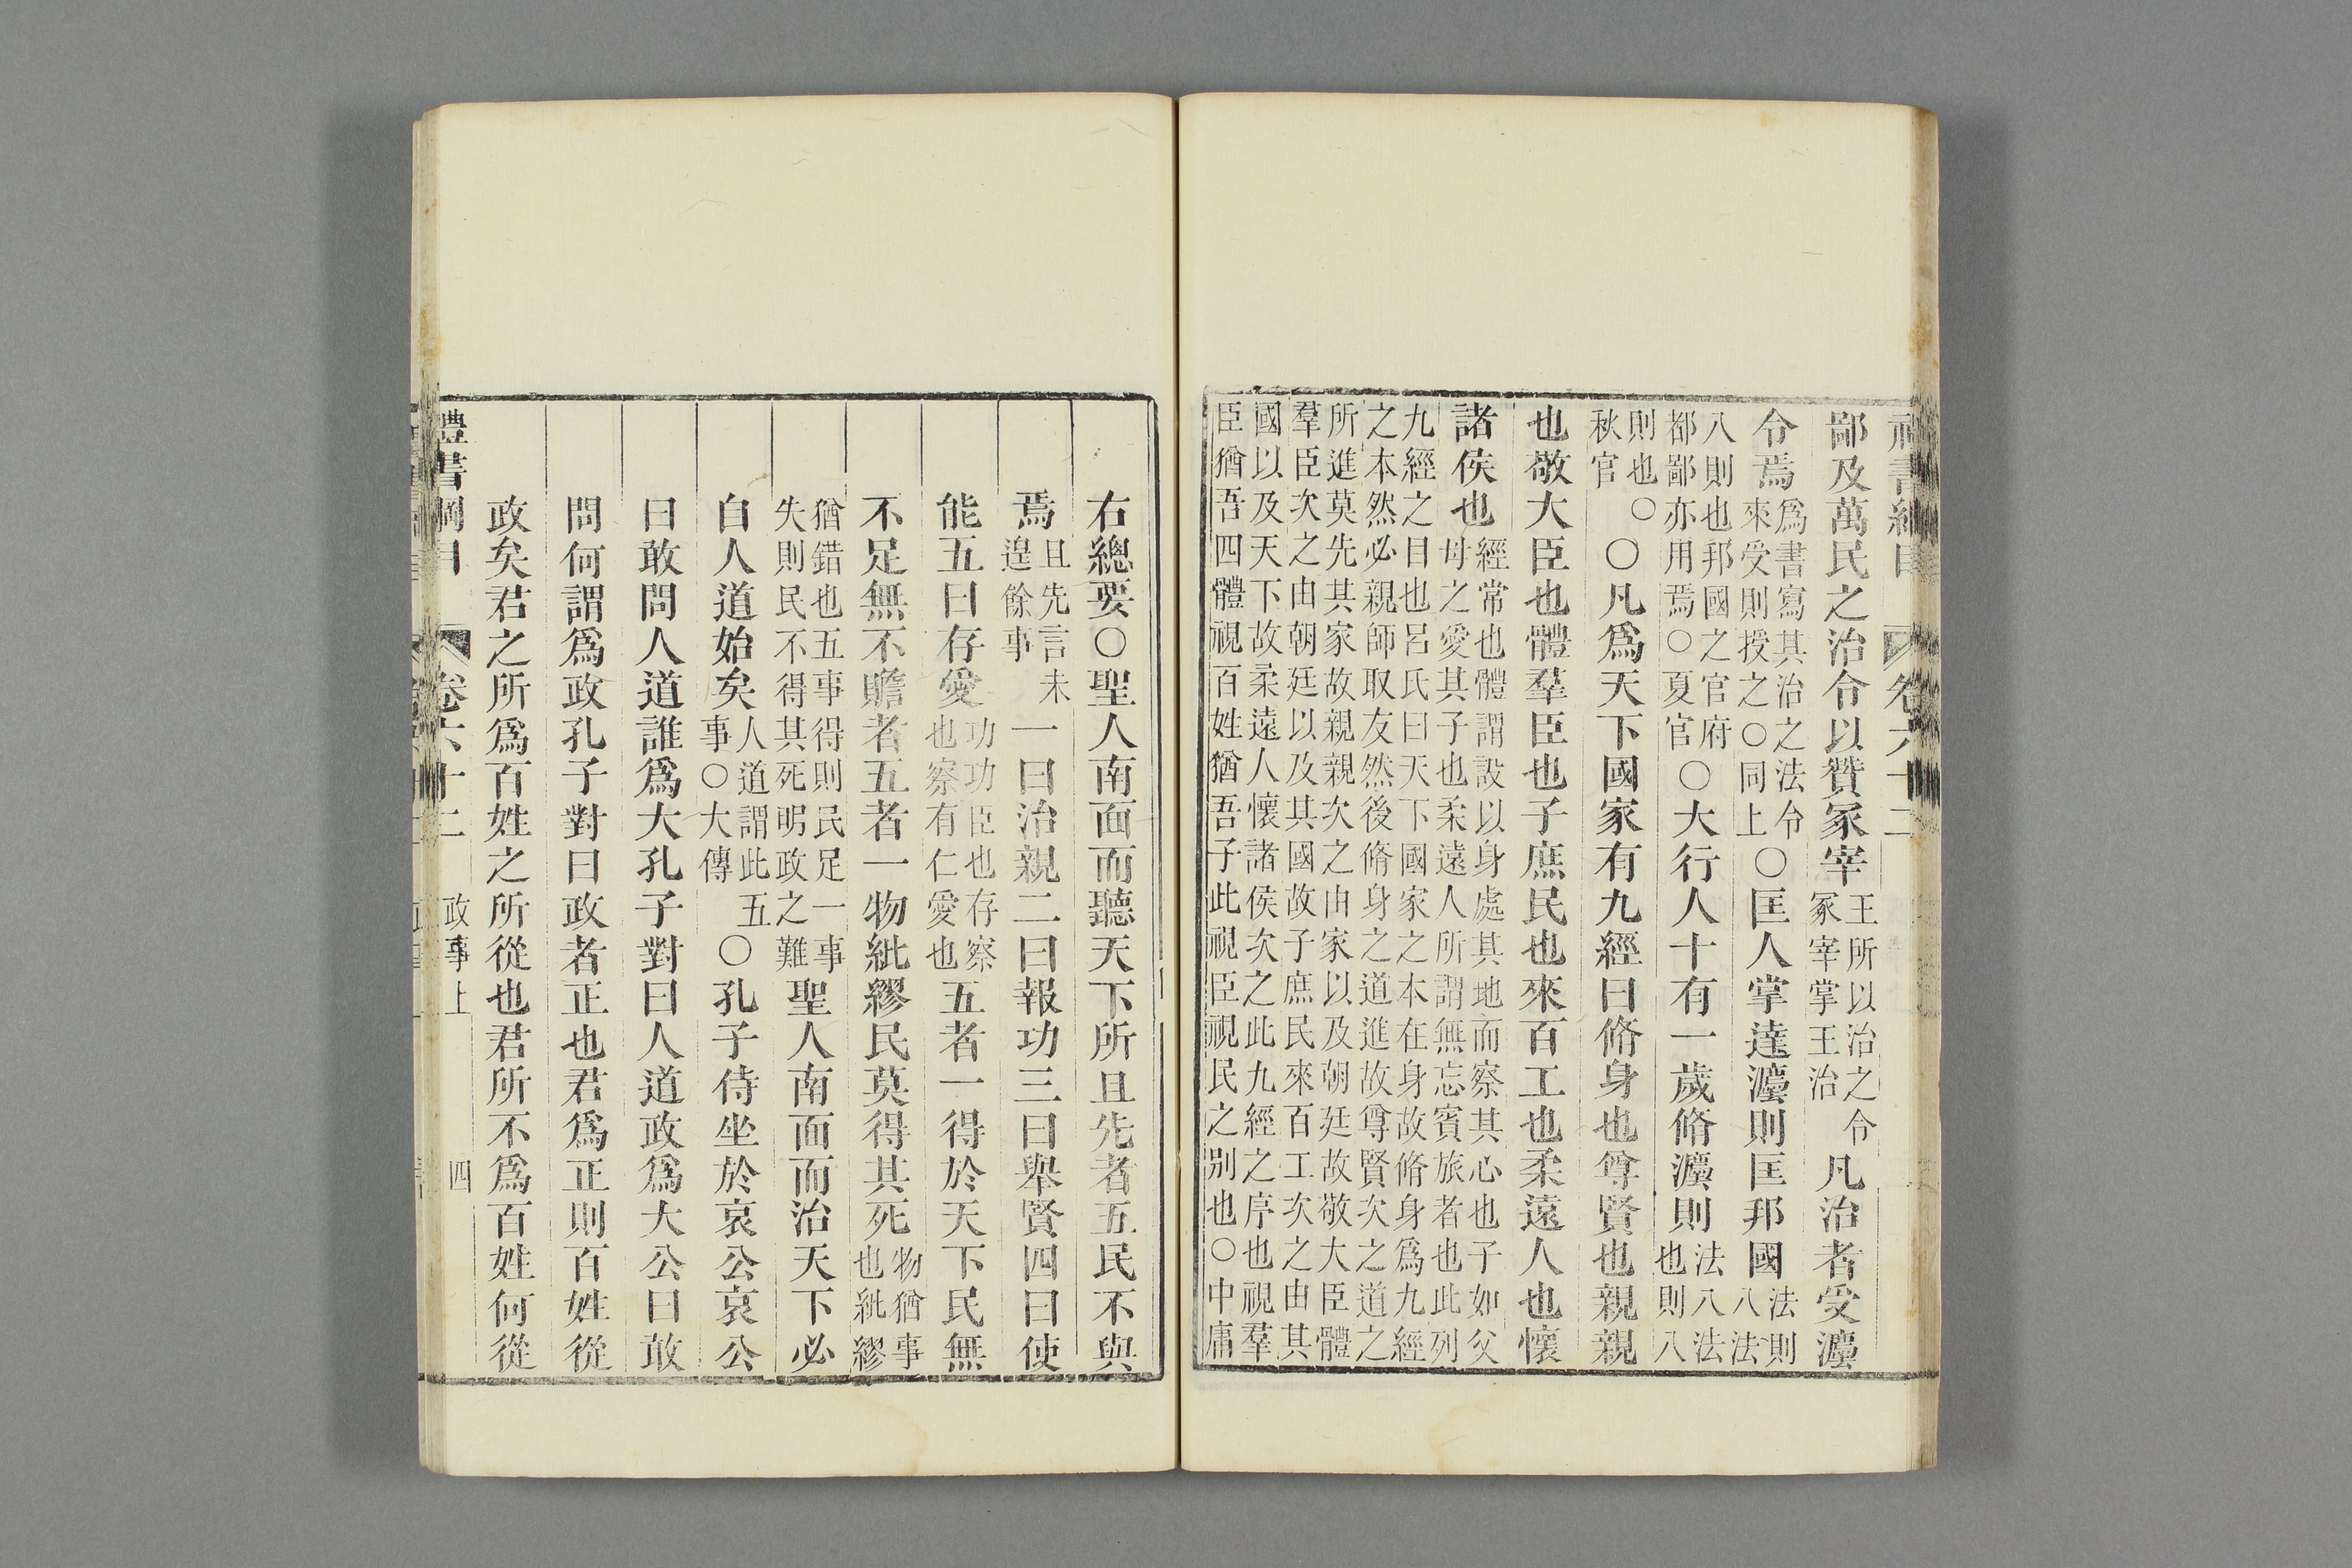 鄙及萬民之治令以贊冢宰王所以治之令冢宰掌王治凡治者受灋
令焉爲書寫其治之法令來受則授之○同上○匡人掌達灋則匡邦國法則八法
八則也邦國之官府都鄙亦用焉○夏官○大行人十有一歲脩灋則法八法也則八
則也○秋官○凡爲天下國家有九經曰脩身也尊賢也親親
也敬大臣也體羣臣也子庶民也來百工也柔遠人也懷
諸侯也經常也體謂設以身處其地而察其心也子如父母之愛其子也柔遠人所謂無忘賓旅者也此列
九經之目也呂氏曰天下國家之本在身故脩身爲九經之本然必親師取友然後脩身之道進故尊賢次之道之
所進莫先其家故親親次之由家以及朝廷故敬大臣體羣臣次之由朝廷以及其國故子庶民來百工次之由其
國以及天下故柔遠人懷諸侯次之此九經之序也視羣臣猶吾四體視百姓猶吾子此視臣視民之別也○中庸
右總要○聖人南面而聽天下所且先者五民不與
焉且先言未遑餘事一曰治親二曰報功三曰舉賢四曰使
能五曰存愛功功臣也存察也察有仁愛也五者一得於天下民無
不足無不贍者五者一物紕繆民莫得其死物猶事也紕繆
猶錯也五事得則民足一事失則民不得其死明政之難聖人南面而治天下必
自人道始矣人道謂此五事○大傳○孔子侍坐於哀公哀公
曰敢問人道誰爲大孔子對曰人道政爲大公曰敢
問何謂爲政孔子對曰政者正也君爲正則百姓從
政矣君之所爲百姓之所從也君所不爲百姓何從
禮書綱目 卷六十二 政事上 四